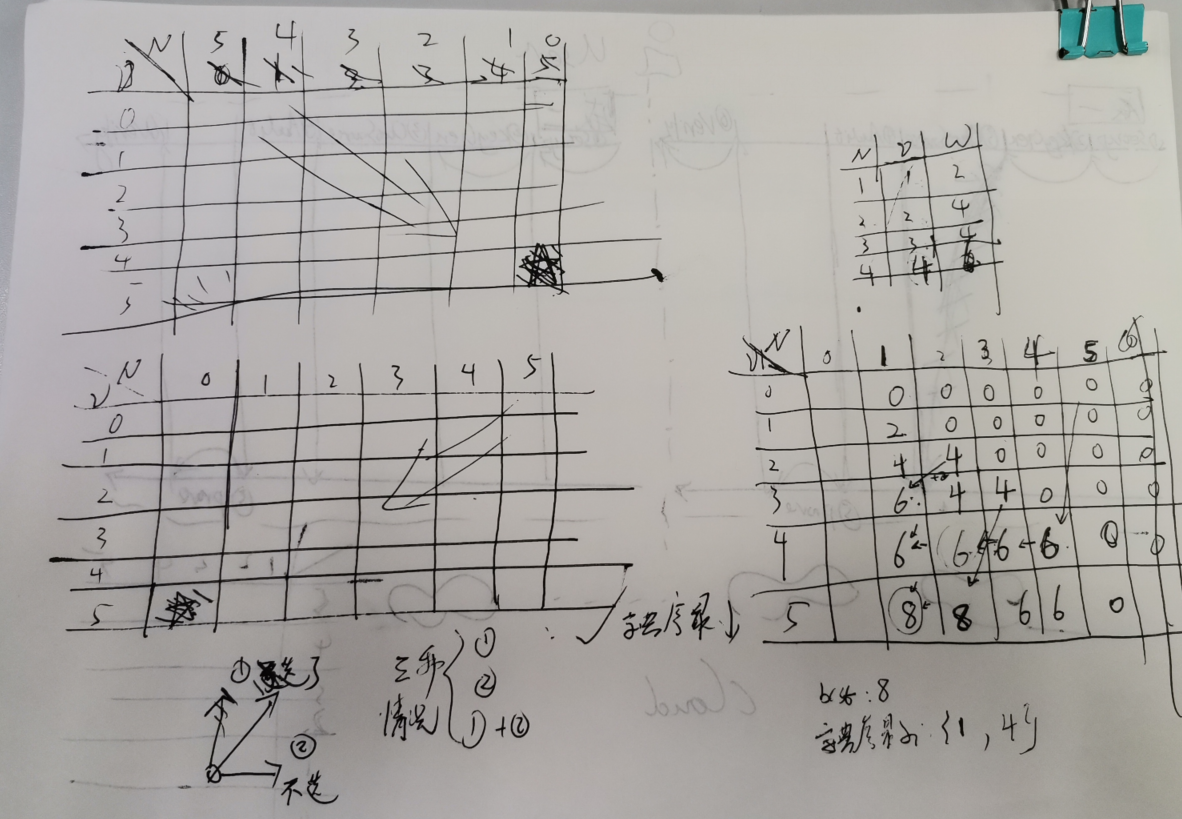 N 5 4 3 2 1 0
V 0 1 2 3 4 5
0
1
2
3
4
5
N V W
1 1 2
2 2 4
3 3 4
4 4
N 0 1 2 3 4 5
V
0
1
2
3
4
5
V N 0 1 2 3 4 5 6
0 0 0 0 0 0 0
1 2 0 0 0 0 0
2 4 4 0 0 0 0
3 6 4 4 0 0 0
4 6 6 6 6 0 0
5 8 8 6 6 0
✓字典序最小
① 选了
② 不选
三种情况 { ① ② ①+②
价值:8
字典序最小:{1,4}